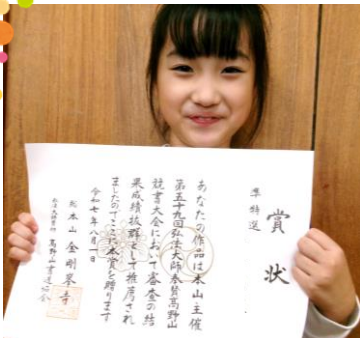 賞状
準特選
あなたの作品は本山主催
第五十九回弘法大師奉賛高野山
競書大会において審査の結
果成績抜群として推薦され
ましたのでここに本賞を贈ります
令和七年八月一日
総本山 金剛峯寺
高野山書道協会